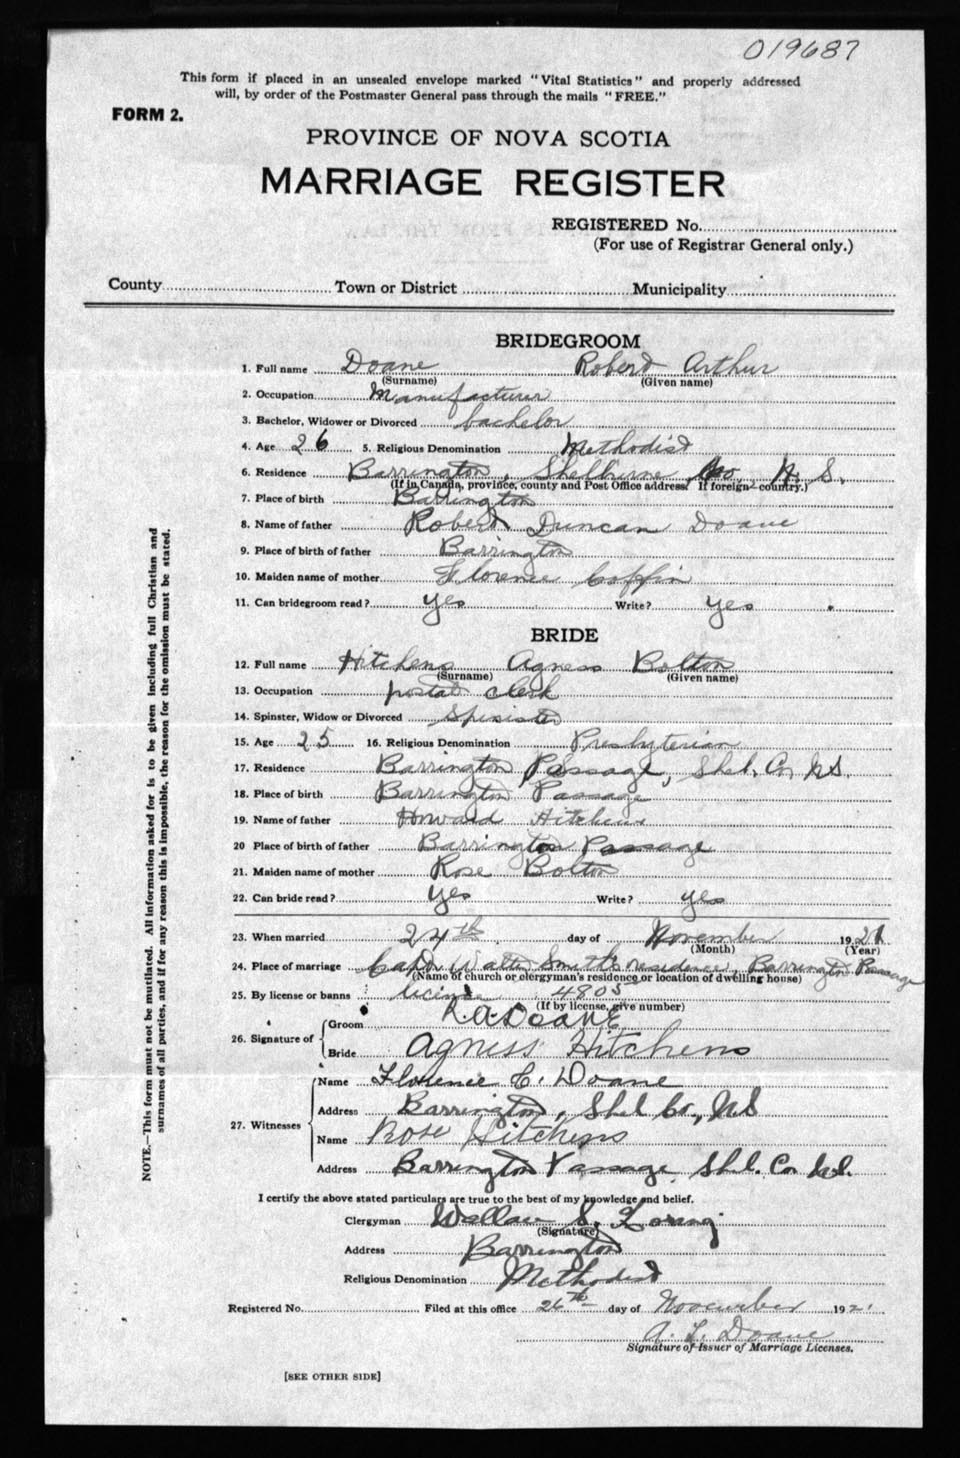 019687
This form if placed in an unsealed envelope marked "Vital Statistics" and properly addressed
will, by order of the Postmaster General pass through the mails "FREE."
FORM 2.
PROVINCE OF NOVA SCOTIA
MARRIAGE REGISTER
REGISTERED No.
(For use of Registrar General only.)
County Town or District Municipality
BRIDEGROOM
1. Full name Doane Robert Arthur
(Surname) (Given name)
2. Occupation Manufacturer
3. Bachelor, Widower or Divorced bachelor
4. Age 26 5. Religious Denomination Methodist
6. Residence Barrington, Shelburne Co. N. S.
(If in Canada, province, county and Post Office address. If foreign - country.)
7. Place of birth Barrington
8. Name of father Robert Duncan Doane
9. Place of birth of father Barrington
10. Maiden name of mother Florence Coffin
11. Can bridegroom read? yes Write? yes
BRIDE
12. Full name Hitchens Agness Bolton
(Surname) (Given name)
13. Occupation postal clerk
14. Spinster, Widow or Divorced Spinster
15. Age 25 16. Religious Denomination Presbyterian
17. Residence Barrington Passage, Shel. Co. N.S.
18. Place of birth Barrington Passage
19. Name of father Howard Hitchens
20 Place of birth of father Barrington Passage
21. Maiden name of mother Rose Bolton
22. Can bride read? yes Write? yes
23. When married 24th day of November 1921
(Month) (Year)
24. Place of marriage Capt. Walter Smith's residence, Barrington Passage
(Name of church or clergyman's residence or location of dwelling house)
25. By license or banns license 4805
(If by license, give number)
26. Signature of Groom R.A. Doane
Bride Agness Hitchens
27. Witnesses Name Florence C. Doane
Address Barrington, Shel. Co., N.S
Name Rose Hitchens
Address Barrington Passage Shel. Co. N.S.
I certify the above stated particulars are true to the best of my knowledge and belief.
Clergyman S.
(Signature)
Address Barrington
Religious Denomination Methodist
Registered No. Filed at this office 26th day of November 1921
A. L. Doane
Signature of Issuer of Marriage Licenses.
[SEE OTHER SIDE]
NOTE.—This form must not be mutilated. All information asked for is to be given including full Christian and
surnames of all parties, and if for any reason this is impossible, the reason for the omission must be stated.